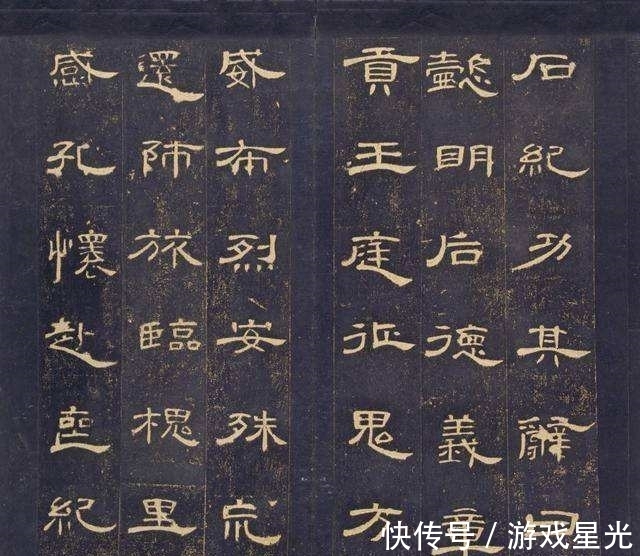 石紀功其辭曰
懿明后德義章
貢王庭征鬼方
威布烈安殊巟
還師旅臨槐里
感孔懷赴喪紀
快传号 / 游戏星光